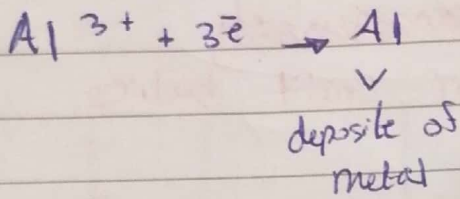 Al ³⁺ + 3ē → Al
deposite of
metal